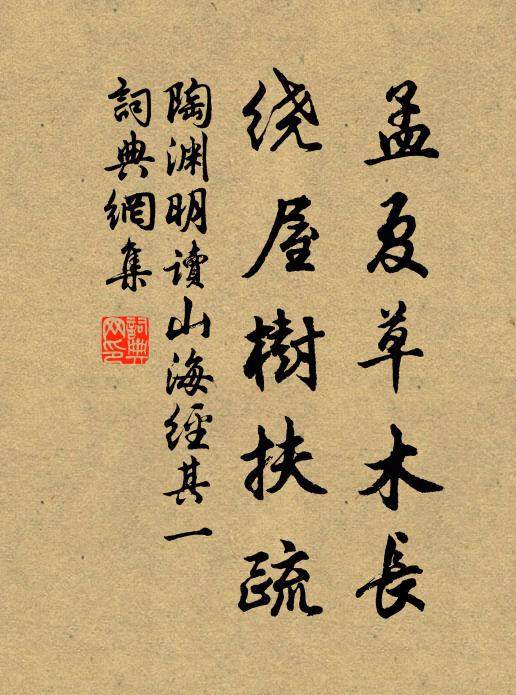 孟夏草木長
绕屋樹扶疏
陶渊明讀山海經其一
詞典網集
詞典网印